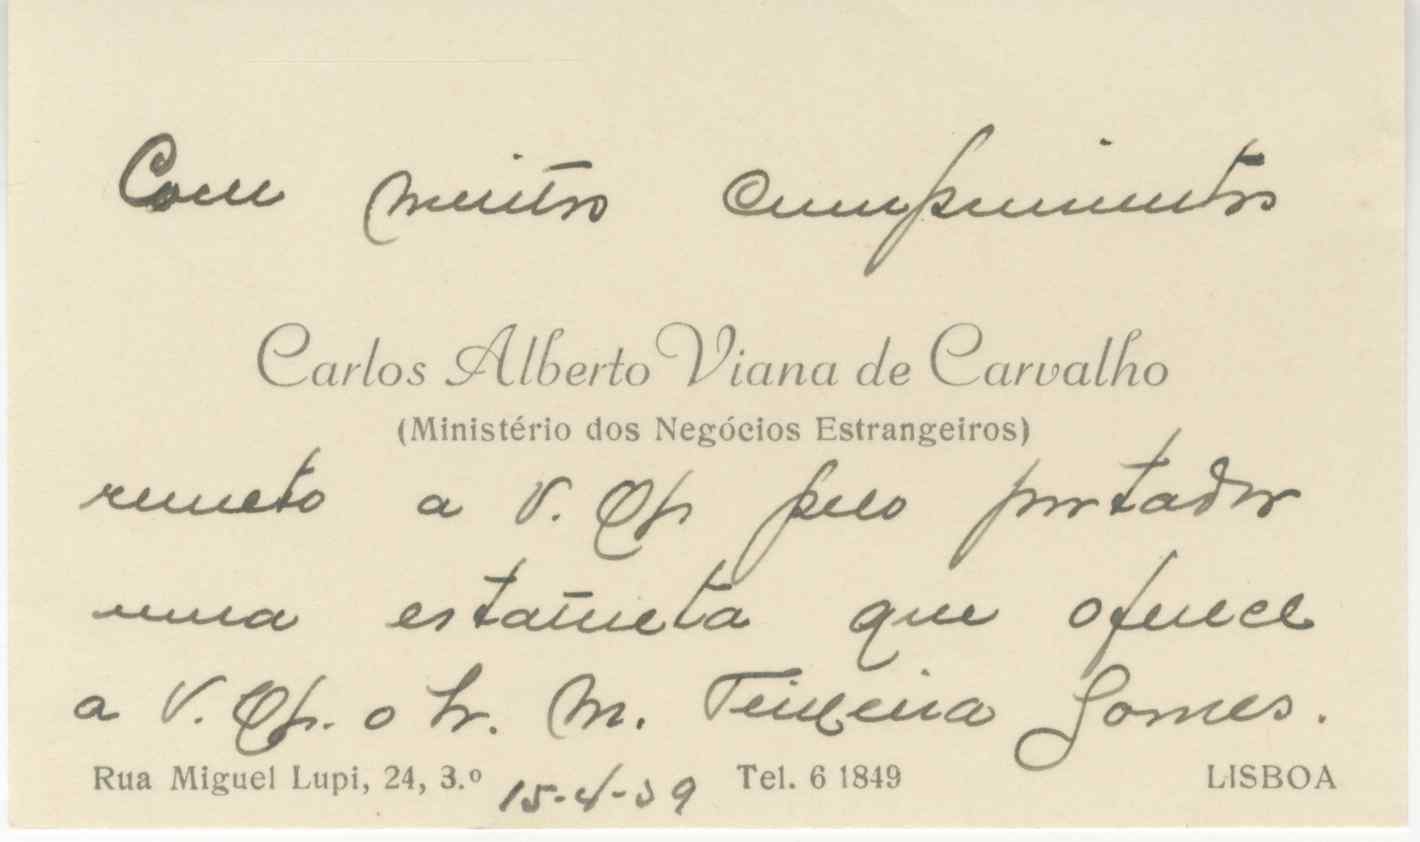 Com muitos cumprimentos
Carlos Alberto Viana de Carvalho
(Ministério dos Negócios Estrangeiros)
remeto a V. Ex. pelo portador
uma estatueta que oferece
a V. Ex. o Sr. M. Teixeira Gomes.
Rua Miguel Lupi, 24, 3.º 15-4-39 Tel. 6 1849 LISBOA